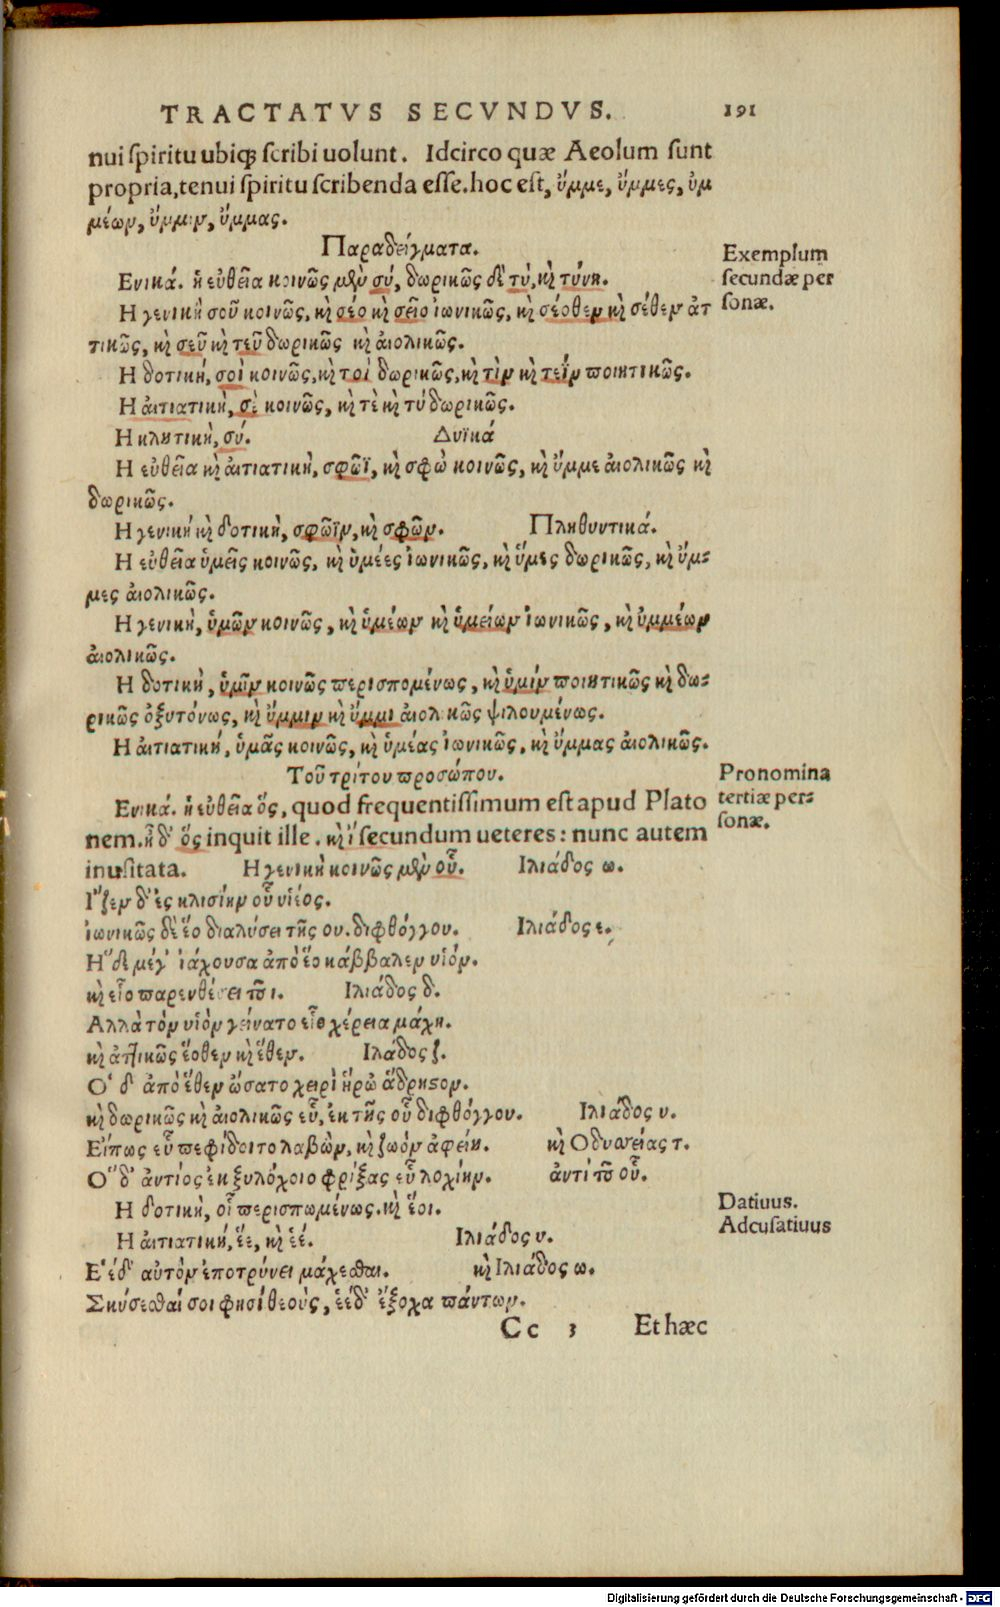 TRACTATVS SECVNDVS. 191
nui spiritu ubiq; scribi uolunt. Idcirco quæ Aeolum sunt
propria, tenui spiritu scribenda esse. hoc est, ὔμμε, ὔμμες, ὐμ
μέων, ὔμμιν, ὔμμας.
Παραδείγματα.
Exemplum
secundæ per
sonæ.
Ενικά. ἡ εὐθεῖα κοινῶς μὲν σύ, δωρικῶς δὲ τύ, καὶ τύνη.
Η γενικὴ σοῦ κοινῶς, καὶ σέο καὶ σεῖο ἰωνικῶς, καὶ σέοθεν καὶ σέθεν ἀτ
τικῶς, καὶ σεῦ καὶ τεῦ δωρικῶς καὶ ἀιολικῶς.
Η δοτική, σοὶ κοινῶς, καὶ τοὶ δωρικῶς, καὶ τὶν καὶ τεῒν ποιητικῶς.
Η ἀιτιατικὴ, σὲ κοινῶς, καὶ τὲ καὶ τὺ δωρικῶς.
Η κλητικὴ, σύ. Δυϊκά
Η εὐθεῖα καὶ ἀιτιατικὴ, σφῶϊ, καὶ σφὼ κοινῶς, καὶ ὔμμε ἀιολικῶς καὶ
δωρικῶς.
Η γενικὴ καὶ δοτικὴ, σφῶϊν, καὶ σφῶν. Πληθυντικά.
Η εὐθεῖα ὑμεῖς κοινῶς, καὶ ὑμέες ἰωνικῶς, καὶ ὕμες δωρικῶς, καὶ ὔμ-
μες ἀιολικῶς.
Η γενικὴ, ὑμῶν κοινῶς, καὶ ὑμέων καὶ ὑμείων ἰωνικῶς, καὶ ὐμμέων
ἀιολικῶς.
Η δοτικὴ, ὑμῖν κοινῶς περισπομένως, καὶ ὑμίν ποιητικῶς καὶ δω-
ρικῶς ὀξυτόνως, καὶ ὔμμιν καὶ ὔμμι ἀιολικῶς ψιλουμένως.
Η ἀιτιατική, ὑμᾶς κοινῶς, καὶ ὑμέας ἰωνικῶς, καὶ ὔμμας ἀιολικῶς.
Τοῦ τρίτου προσώπου.
Pronomina
tertiæ per-
sonæ.
Ενικά. ἡ εὐθεῖα ὅς, quod frequentissimum est apud Plato
nem. ἦ δ' ὅς inquit ille. καὶ ἵ secundum ueteres: nunc autem
inusitata. Η γενικὴ κοινῶς μὲν οὗ. Ιλιάδος ω.
Ιʹζεν δ' ἐς κλισίην οὗ υἱέος.
ἰωνικῶς δὲ ἕο διαλύσει τῆς ου. διφθόγγου. Ιλιάδος ε.
Ηʹ δὲ μέγ' ἰάχουσα ἀπὸ ἕο κάββαλεν υἱόν.
καὶ εἷο παρενθέσει τοῦ ι. Ιλιάδος δ.
Αλλὰ τὸν υἱὸν γείνατο εἷο χέρεια μάχη.
καὶ ἀττικῶς ἕοθεν καὶ ἕθεν. Ιλάδος ζ.
Οʹ δ' ἀπὸ ἕθεν ὤσατο χειρὶ ἥρω ἄδρηστον.
καὶ δωρικῶς καὶ ἀιολικῶς εὗ, ἐκ τῆς οὗ διφθόγγου. Ιλιάδος υ.
Εἴπως εὗ πεφίδοιτο λαβὼν, καὶ ζωὸν ἀφείη. καὶ Οδυσσείας τ.
Οʹ δ' ἀντίος ἐκ ξυλόχοιο φρίξας εὗ λοχίην. ἀντὶ τοῦ οὗ.
Datiuus.
Adcusatiuus
Η δοτικὴ, οἷ περισπωμένως. καὶ ἕοι.
Η ἀιτιατική, ἕε, καὶ ἑέ. Ιλιάδος υ.
Εʹ ἑ δ' αὐτὸν ἐποτρύνει μάχεσθαι. καὶ Ιλιάδος ω.
Σκύσεσθαί σοι φησὶ θεοὺς, ἑὲ δ' ἔξοχα πάντων.
Cc 3 Et hæc
Digitalisierung gefördert durch die Deutsche Forschungsgemeinschaft - DFG